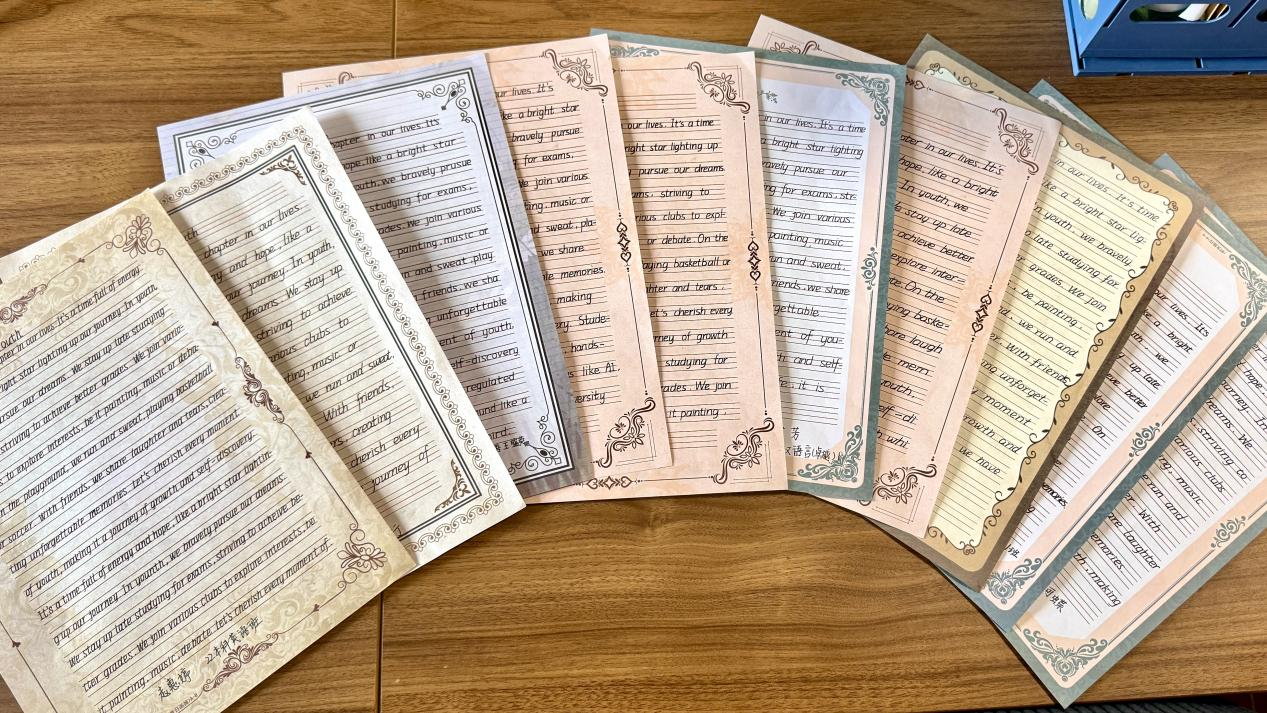 outh
apter in our lives. It's a time full of energy
ight star lighting up our journey. In youth,
rsue our dreams. We stay up late studying
striving to achieve better grades. We join vario-
s to explore interests, be it painting, music or deba-
n the playground, we run and sweat, playing basketball
r soccer. With friends, we share laughter and tears, crea-
ting unforgettable memories. Let's cherish every moment
of youth, making it a journey of growth and self-discovery.
It's a time full of energy and hope, like a bright star lightin-
g up our journey. In yourth, we bravely pursue our dreams.
We stay up late studying for exams, striving to acheive be-
tter grades. We join various clubs to explore interests, be
it, painting, music, debate. Let's cherish every moment of.
uth
chapter in our lives.
y and hope, like a
our journey. In youth,
dreams. We stay up
striving to achieve
arious clubs to
ting, music or
we run and sweat,
With friends,
rs, creating
cherish every
journey of
apter in our lives It's
hope. like a bright star
outh, we bravely prusue
studying for exams,
ades. We join various
painting, music or
n and sweat play
friends, we sha
unforgettable
ent of youth,
lf-discovery
regulated
und like a
ird.
our lives It's
ke a bright star
bravely pursue
for exams.
We join various
ng, music or
nd sweat, pla-
we share
le memories.
making
ery. Stude-
hands-
s like AI,
versity
our lives. It's a time
ight star lighting up
pursue our dreams.
ms, striving to
rious clubs to expl-
or debate. On the
aying basketball or
hter and tears,
et's cherish every
rney of growth
studying for
ades. We join
it painting
in our lives. It's a time
a bright star lighting
ravely pursue our
ing for exams, stri-
We join various
painting, music
n and sweat,
iends, we share
gettable
ent of you-
h and self-
e, it is
apter in our lives. It's
hope, like a bright
In youth, we
e stay up late
achieve better
explore inter-
te On the
aying baske-
re laugh
e mem
outh,
elf-di-
whi
in our lives. It's time
ke a bright star lig-
youth, we bravely
late studying for
r grades. We join
be painting,
d, we run and
r. With friends
ng unforget-
moment
rowth and
we have
our lives. It's
ke a bright
th, we
up late
better
re
On
emories.
hope.
In
reams. We
striving to
arious clubs
ng, music.
e run and
With
re laughter
emories.
th, making